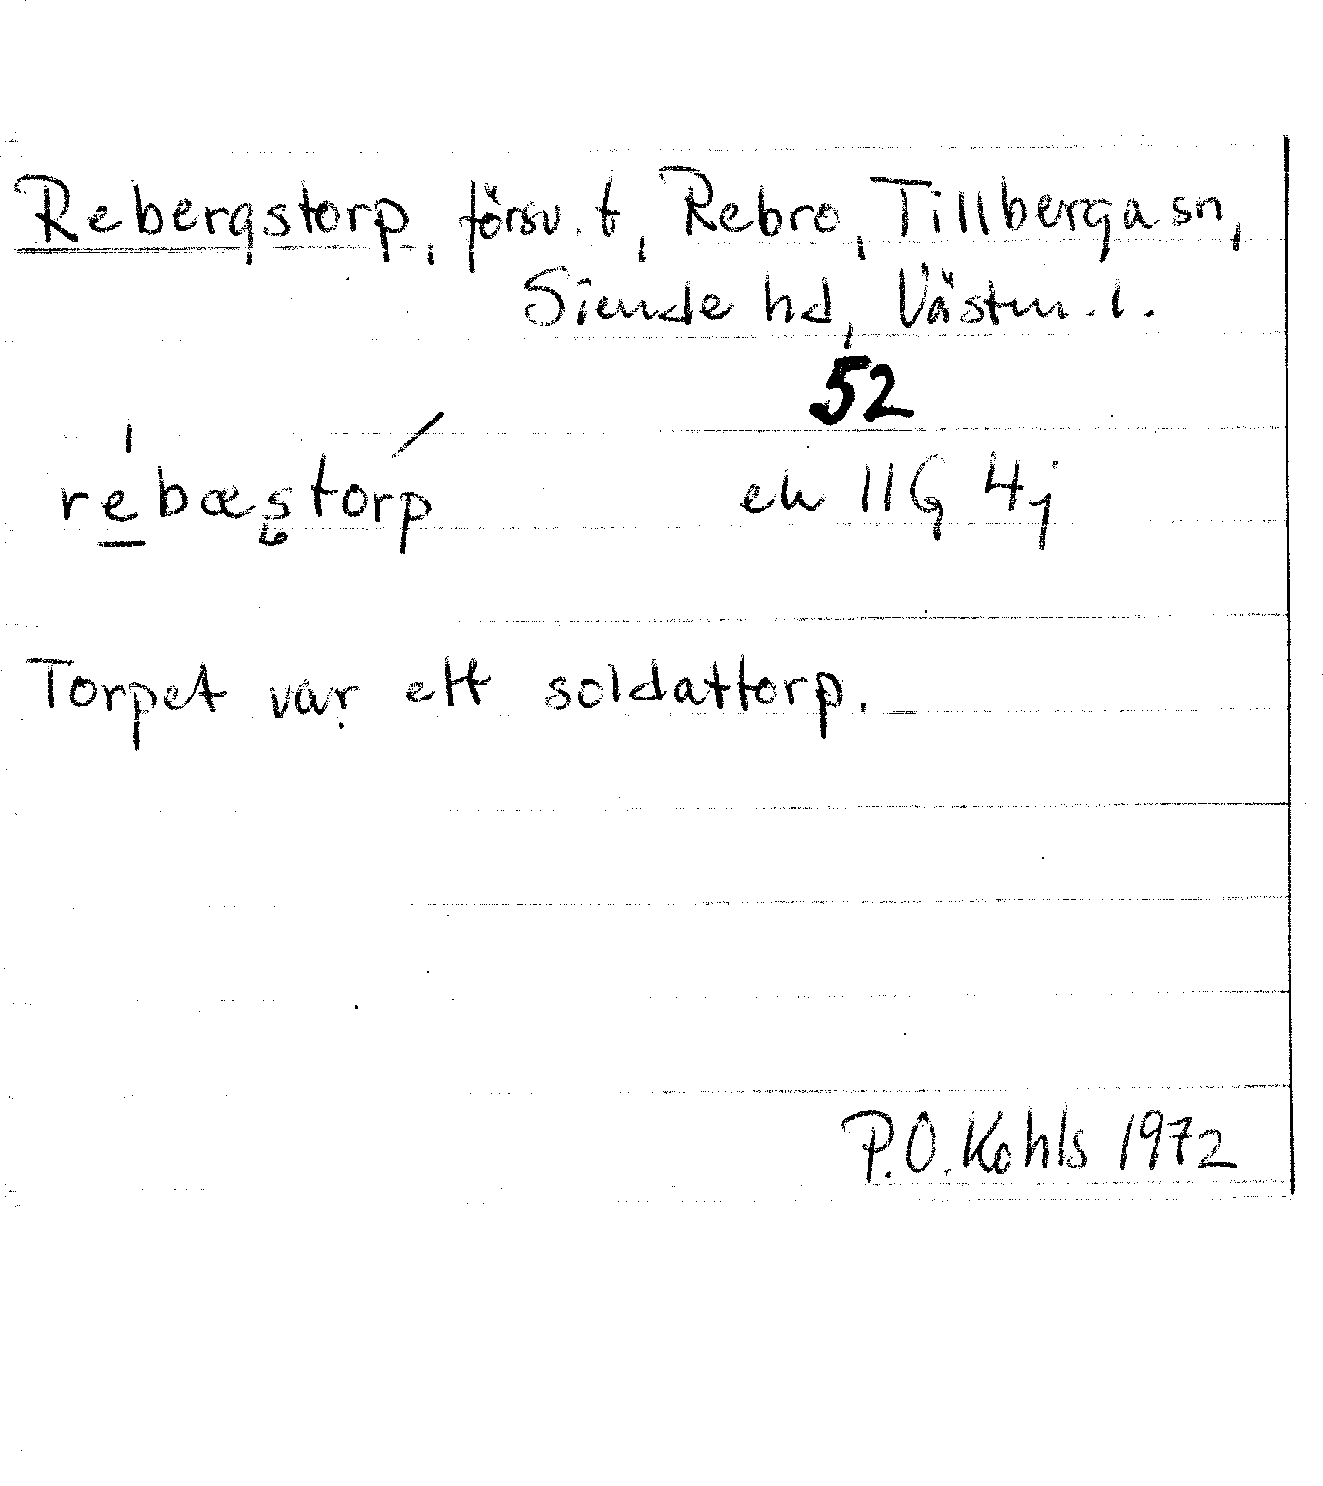 Rebergstorp, försv. t, Rebro, Tillberga sn,
Siende hd, Västm. l.
52
rébæstorp ek 11G 4j
Torpet var ett soldattorp.
P.O. Kohls 1972